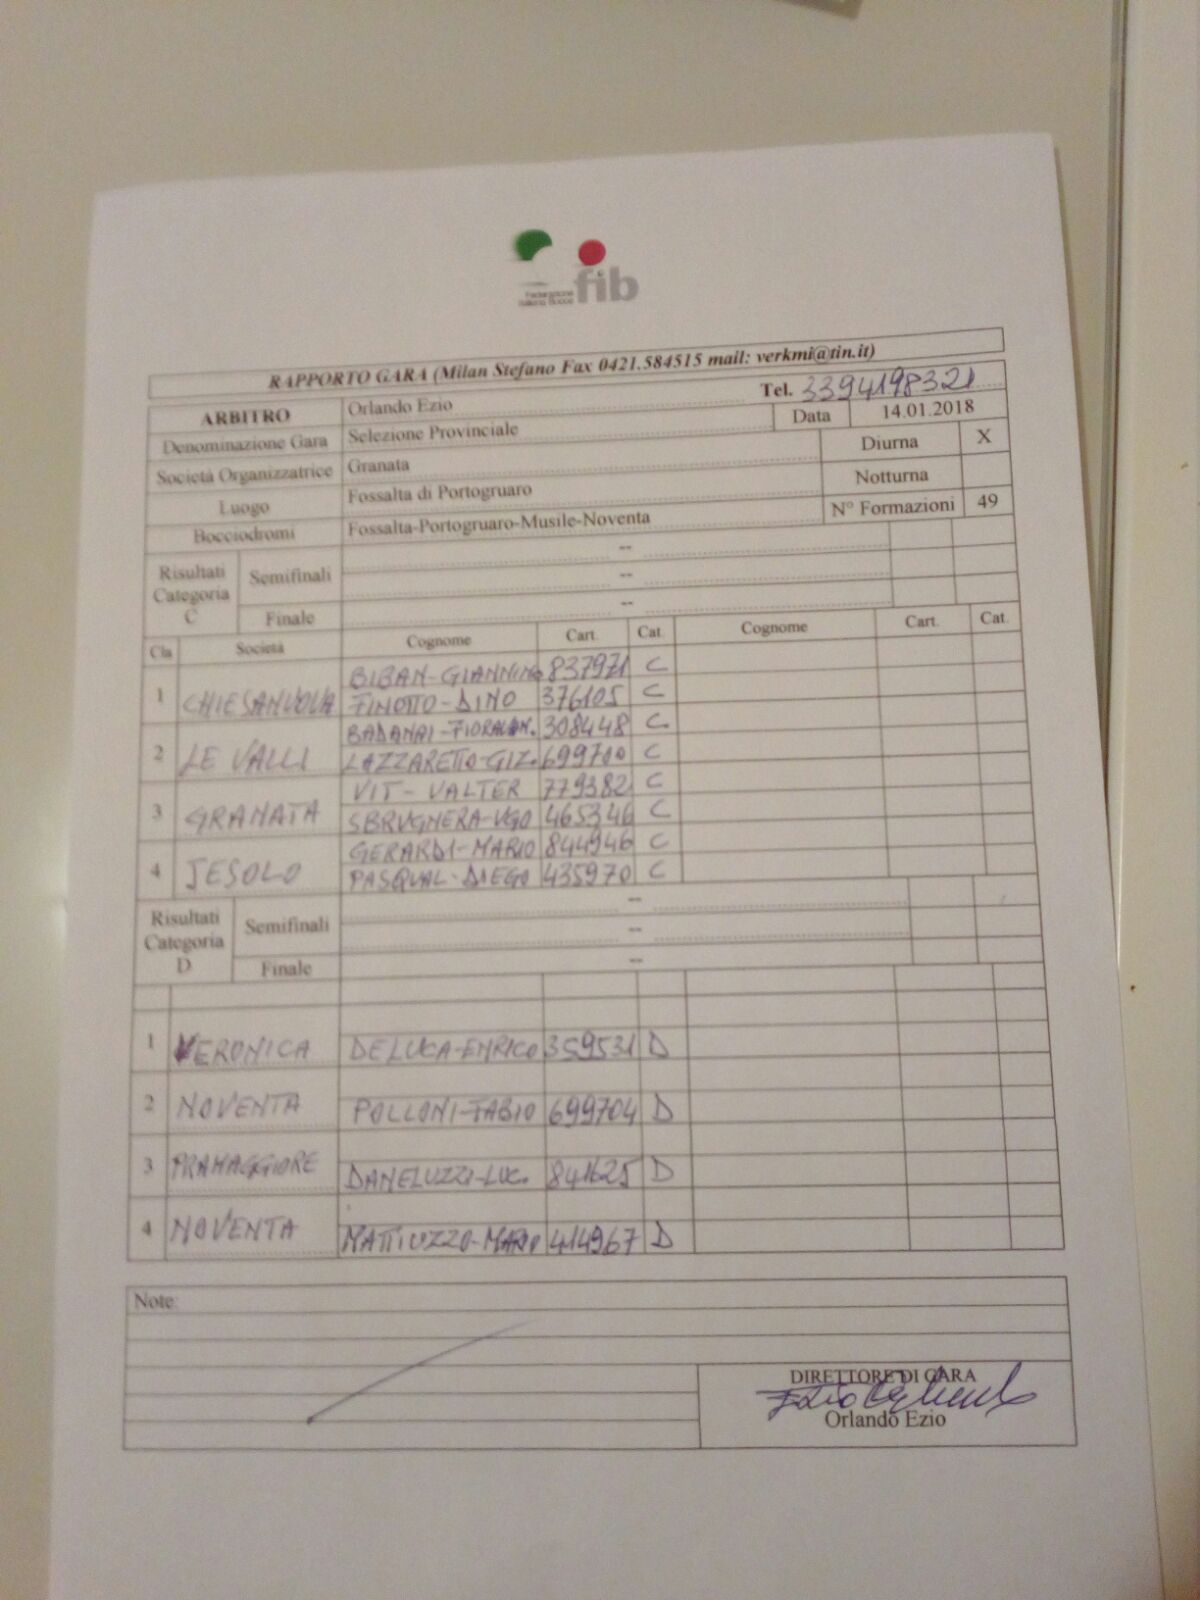 Federazione
Italiana Bocce
fib
RAPPORTO GARA (Milan Stefano Fax 0421.584515 mail: verkmi@tin.it)
ARBITRO Orlando Ezio Tel. 3394198321
Denominazione Gara Selezione Provinciale Data 14.01.2018
Società Organizzatrice Granata Diurna X
Luogo Fossalta di Portogruaro Notturna
Bocciodromi Fossalta-Portogruaro-Musile-Noventa N° Formazioni 49
Risultati Categoria C Semifinali --
--
Finale --
Cla Società Cognome Cart. Cat. Cognome Cart. Cat.
1 CHIESANUOVA BIBAN-GIANNINO 837971 C
FINOTTO-DINO 376105 C
2 LE VALLI BADANAI-FIORAVAN. 308448 C.
LAZZARETTO-GIZ. 699700 C
3 GRANATA VIT-VALTER 779382 C
SBRUGNERA-UGO 465346 C
4 JESOLO GERARDI-MARIO 844946 C
PASQUAL-DIEGO 435970 C
Risultati Categoria D Semifinali --
--
Finale --
1 VERONICA DELUCA-ENRICO 359531 D
2 NOVENTA POLLONI-FABIO 699704 D
3 PRAMAGGIORE DANELUZZI-LUC. 841625 D
4 NOVENTA MATTIUZZO-MARIO 414967 D
Note:
DIRETTORE DI GARA
Orlando Ezio